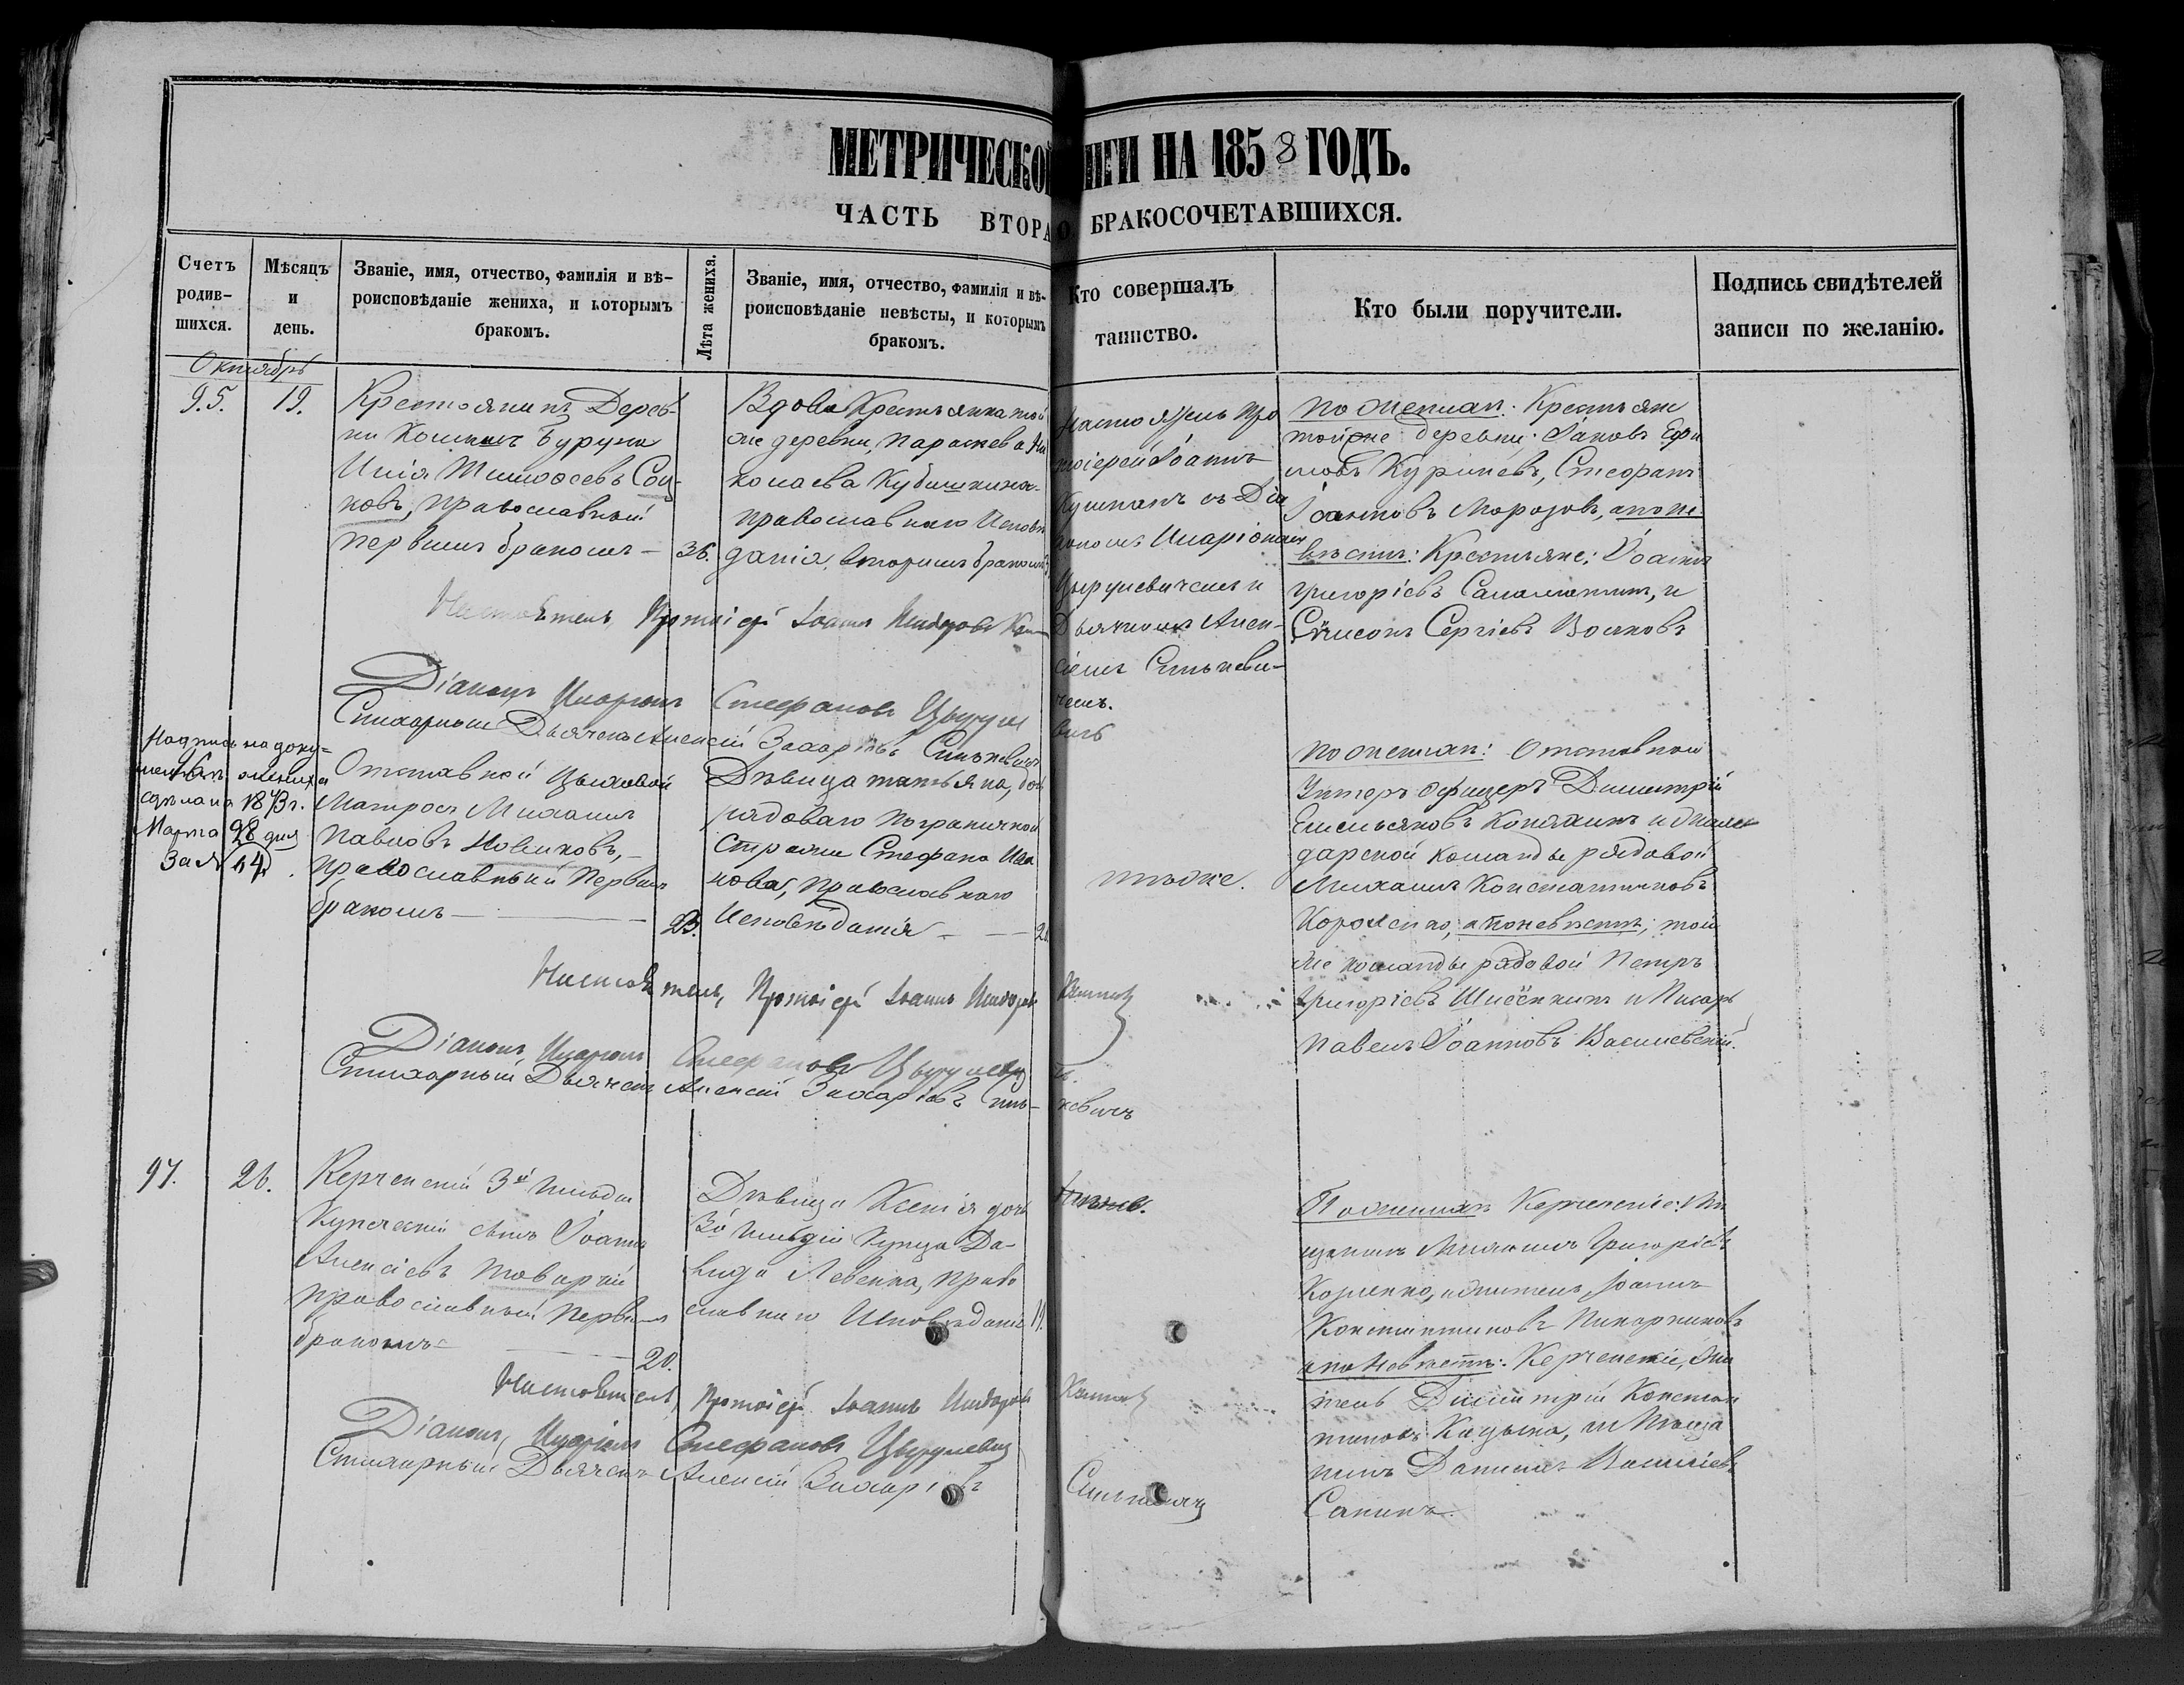 МЕТРИЧЕСКОЙ
ИГИ НА 1858 ГОДЪ.
ЧАСТЬ ВТОРА
О БРАКОСОЧЕТАВШИХСЯ.
Счетъ родив-шихся.
Мѣсяцъ и день.
Званіе, имя, отчество, фамилія и вѣ-
роисповѣданіе жениха, и которымъ
бракомъ.
Лѣта жениха.
Званіе, имя, отчество, фамилія и вѣ-
роисповѣданіе невѣсты, и которымъ
бракомъ.
Кто совершалъ
таинство.
Кто были поручители.
Подпись свидѣтелей
записи по желанію.
Октябрь
95.
19.
Крестьянинъ Дерев-
ни Коминъ Буруна
Илія Тимоѳеевъ Соц-
ковъ, православный
первымъ бракомъ —
36.
Вдова Крестьянка той
же деревни, Параскева Ни
колаева Кубышкина
православнаго Исповѣ
данія, вторымъ бракомъ
Настоятель Про
тоіерей Іоаннъ
Кушнаръ съ Діа
кономъ Иларіономъ
Цырулевичемъ и
Дьячкомъ Алек-
сіемъ Синькеви-
чемъ.
по женихѣ: Крестьяне
той же деревни: Іаковъ Ефи
мовъ Куріневъ, Стефанъ
Іоанновъ Морозовъ, а по не
вѣстѣ: Крестьяне: Іоаннъ
Григоріевъ Саламатинъ, и
Сѵмеонъ Сергіевъ Волковъ
Настоятель, Протоіерей Іоаннъ
Діаконъ Иларіонъ Стефановъ Цырулевичъ
Стихарный Дьячекъ Алексій Захаріевъ Синькевичъ
Надпись на доку-
ментахъ жениха
сдѣлана 1873 г.
Марта 28 дня
За № 14
Отставной Цеховой
Матросъ Михаилъ
Павловъ Новиковъ, —
православный первымъ
бракомъ —
23.
Дѣвица Татьяна, дочь
рядоваго пограничной
стражи Стефана Ива
нова, православнаго
Исповѣданія —
тѣже.
по женихѣ: Отставной
Унтеръ офицеръ Димитрій
Емельяновъ Копаxинъ и жан
дарской команды рядовой
Михаилъ Константиновъ
а по невѣстѣ; той
же команды рядовой Петръ
Григоріевъ и Писарь
Павелъ Іоанновъ Василевскій.
Настоятель, Протоіерей Іоаннъ
Діаконъ, Иларіонъ Стефановъ Цырулевичъ
Стихарный Дьячекъ Алексій Захаріевъ Синь-кевичъ
97.
26.
Керченскій 3й гильдіи
Купеческій сынъ Іоаннъ
Алексіевъ Товарчій
православный первымъ
бракомъ —
20.
Дѣвица Ксенія дочь
3й гильдіи Купца Да-
вида Левенка, право
славнаго Исповѣданія
тѣже.
По женихѣ Керченскіе: Мѣ
щанинъ Михаилъ Григоріевъ
и житель Іоаннъ
Константиновъ
а по невѣстѣ: Керченскіе, жи
тель Димитрій Констан
тиновъ и Мѣща
нинъ Даніилъ Василіевъ
Санинъ.
Настоятель, Протоіерей Іоаннъ
Діаконъ, Иларіонъ Стефановъ Цырулевичъ
Стихарный Дьячекъ Алексій Захаріевъ
Синькевичъ